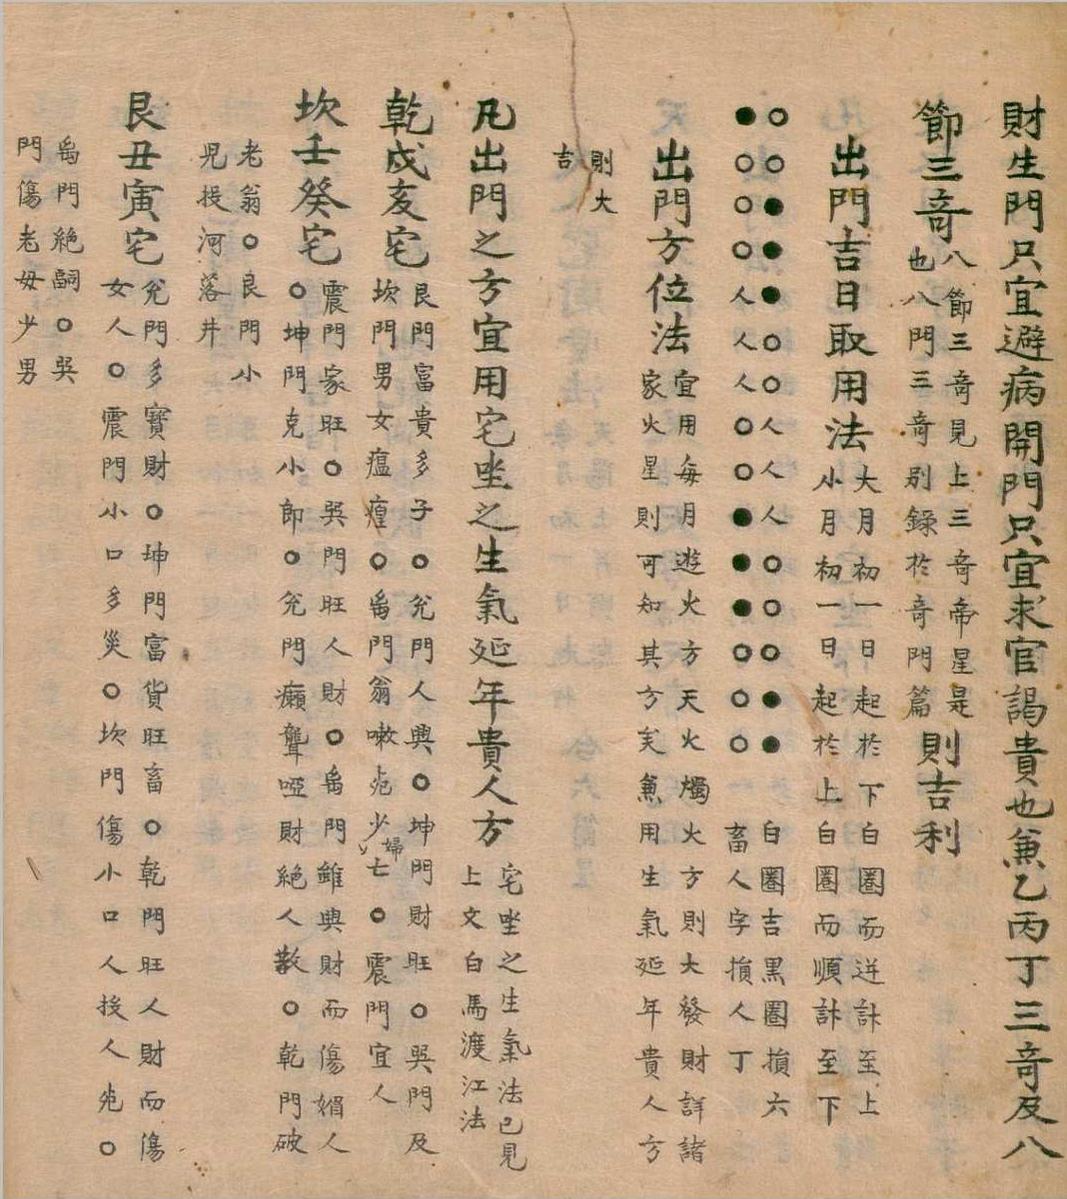 財生門只宜避病開門只宜求官謁貴也兼乙丙丁三奇及八
節三奇
八節三奇見上三奇帝星是
也八門三奇別錄於奇門篇
則吉利
出門吉日取用法
大月初一日起於下白圈而逆計至上
小月初一日起於上白圈而順計至下
○○●●●○○人人人○○○●● 白圈吉黑圈損六
●○○○人人人○○●●●○○○ 畜人字損人丁
出門方位法
宜用每月遊火方天火燭火方則大發財詳諸
家火星則可知其方矣兼用生氣延年貴人方
則大
吉
凡出門之方宜用宅坐之生氣延年貴人方
宅坐之生氣法已見
上文白馬渡江法
乾戌亥宅
艮門富貴多子○兊門人興○坤門財旺○吳門及
坎門男女瘟㾮○离門翁嗽死少婦亡○震門宜人
坎壬癸宅
震門家旺○吳門旺人財○离門雖興財而傷媚人
○坤門克小郎○兊門癩聾啞財絕人散○乾門破
老翁○艮門小
児投河落井
艮丑寅宅
兊門多寶財○坤門富貨旺畜○乾門旺人財而傷
女人○震門小口多災○坎門傷小口人投人死○
离門絕嗣○吳
門傷老母少男